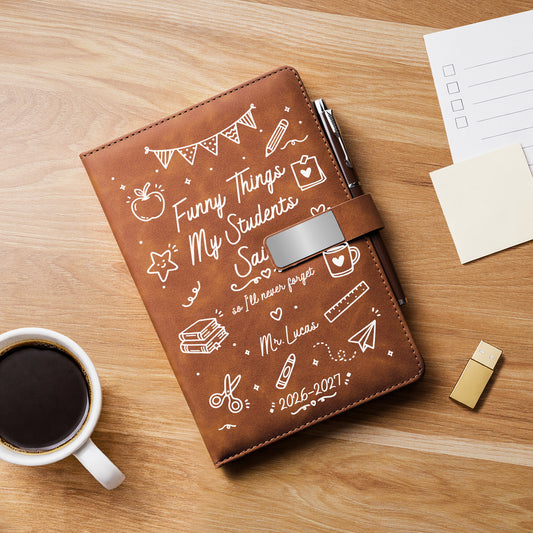 Funny Things
My Students
Sai
so I'll never forget
Mr. Lucas
2026-2027